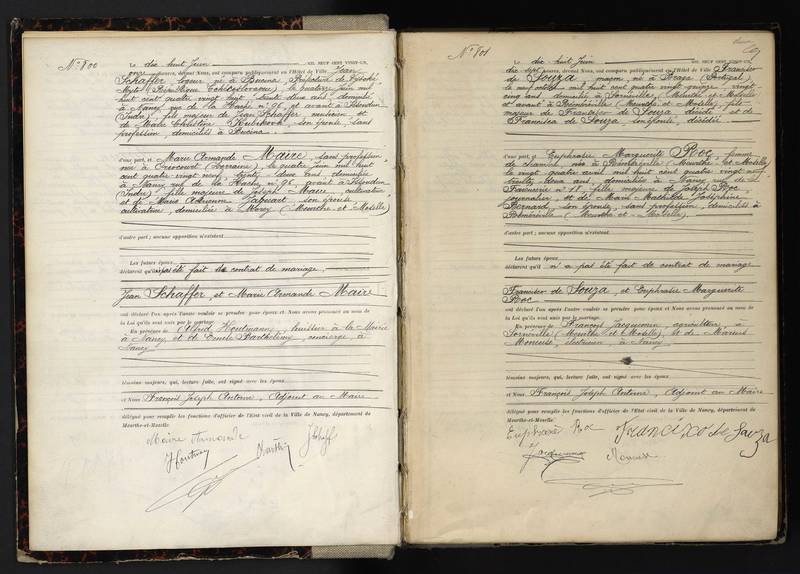 N° 800
Le dix huit Juin MIL NEUF CENT VINGT-UN,
heures, devant Nous, ont comparu publiquement en l'Hôtel de Ville Jean
Schaffer, né à Bucina
le quatorze juin mil
huit cent quatre vingt huit, trente deux ans, domicilié
à Nancy rue de la N° 96, et avant à Issoudun
(Indre), fils majeur de Jean Schaffer, et
de Marie Christine son épouse, sans
profession, domiciliés à Bucina.
d'une part, et Marie Armande Maire, sans profession,
née à (Lorraine), le quatre juin mil huit
cent quatre vingt neuf, trente deux ans, domiciliée
à Nancy rue de la N° 96, avant à Issoudun
(Indre) fille majeure de Joseph Maire, cultivateur
et de Marie Adrienne Jaquart, son épouse,
cultivatrice, domiciliés à (Meurthe et Moselle)
d'autre part; aucune opposition n'existant
Les futurs époux
déclarent qu'il n'a pas été fait de contrat de mariage.
Jean Schaffer et Marie Armande Maire
ont déclaré l'un après l'autre vouloir se prendre pour époux et Nous avons prononcé au nom de
la Loi qu'ils sont unis par le mariage.
En présence de Alfred Houtmann, huissier à la Mairie
à Nancy et de Emile Barthélemy, concierge à
Nancy
témoins majeurs, qui, lecture faite, ont signé avec les époux
et Nous François Joseph Antoine, Adjoint au Maire
délégué pour remplir les fonctions d'officier de l'Etat civil de la Ville de Nancy, département de
Meurthe-et-Moselle.
Maire Armande
N° 801
Le dix huit Juin MIL NEUF CENT VINGT-UN
dix sept heures, devant Nous, ont comparu publiquement en l'Hôtel de Ville Francisco
de Souza, maçon, né à Braga (Portugal)
le neuf mil huit cent quatre vingt quinze, vingt
cinq ans, domicilié à (Meurthe et Moselle)
et avant à (Meurthe et Moselle), fils
majeur de Francisco de Souza décédé et de
Francisca de Souza, son épouse, décédée
d'une part, et Euphrasie Marguerite Roc, femme
de chambre, née à (Meurthe et Moselle)
le vingt quatre avril mil huit cent quatre vingt neuf,
trente deux ans, domiciliée à Nancy rue de la
Faïencerie N° 18, fille majeure de Joseph Roc,
journalier, et de Marie Mathilde Joséphine
Bernard, son épouse, sans profession, domiciliés à
(Meurthe et Moselle),
d'autre part; aucune opposition n'existant
Les futurs époux
déclarent qu'il n'a pas été fait de contrat de mariage
Francisco de Souza, et Euphrasie Marguerite
Roc
ont déclaré l'un après l'autre vouloir se prendre pour époux et Nous avons prononcé au nom de
la Loi qu'ils sont unis par le mariage.
En présence de François Jacquemin, agriculteur, à
(Meurthe et Moselle) et de Marius
électricien, à Nancy.
témoins majeurs, qui, lecture faite, ont signé avec les époux
et Nous François Joseph Antoine, Adjoint au Maire
délégué pour remplir les fonctions d'officier de l'Etat civil de la Ville de Nancy, département de
Meurthe-et-Moselle.
Euphrasie Roc Francixo de Sauza